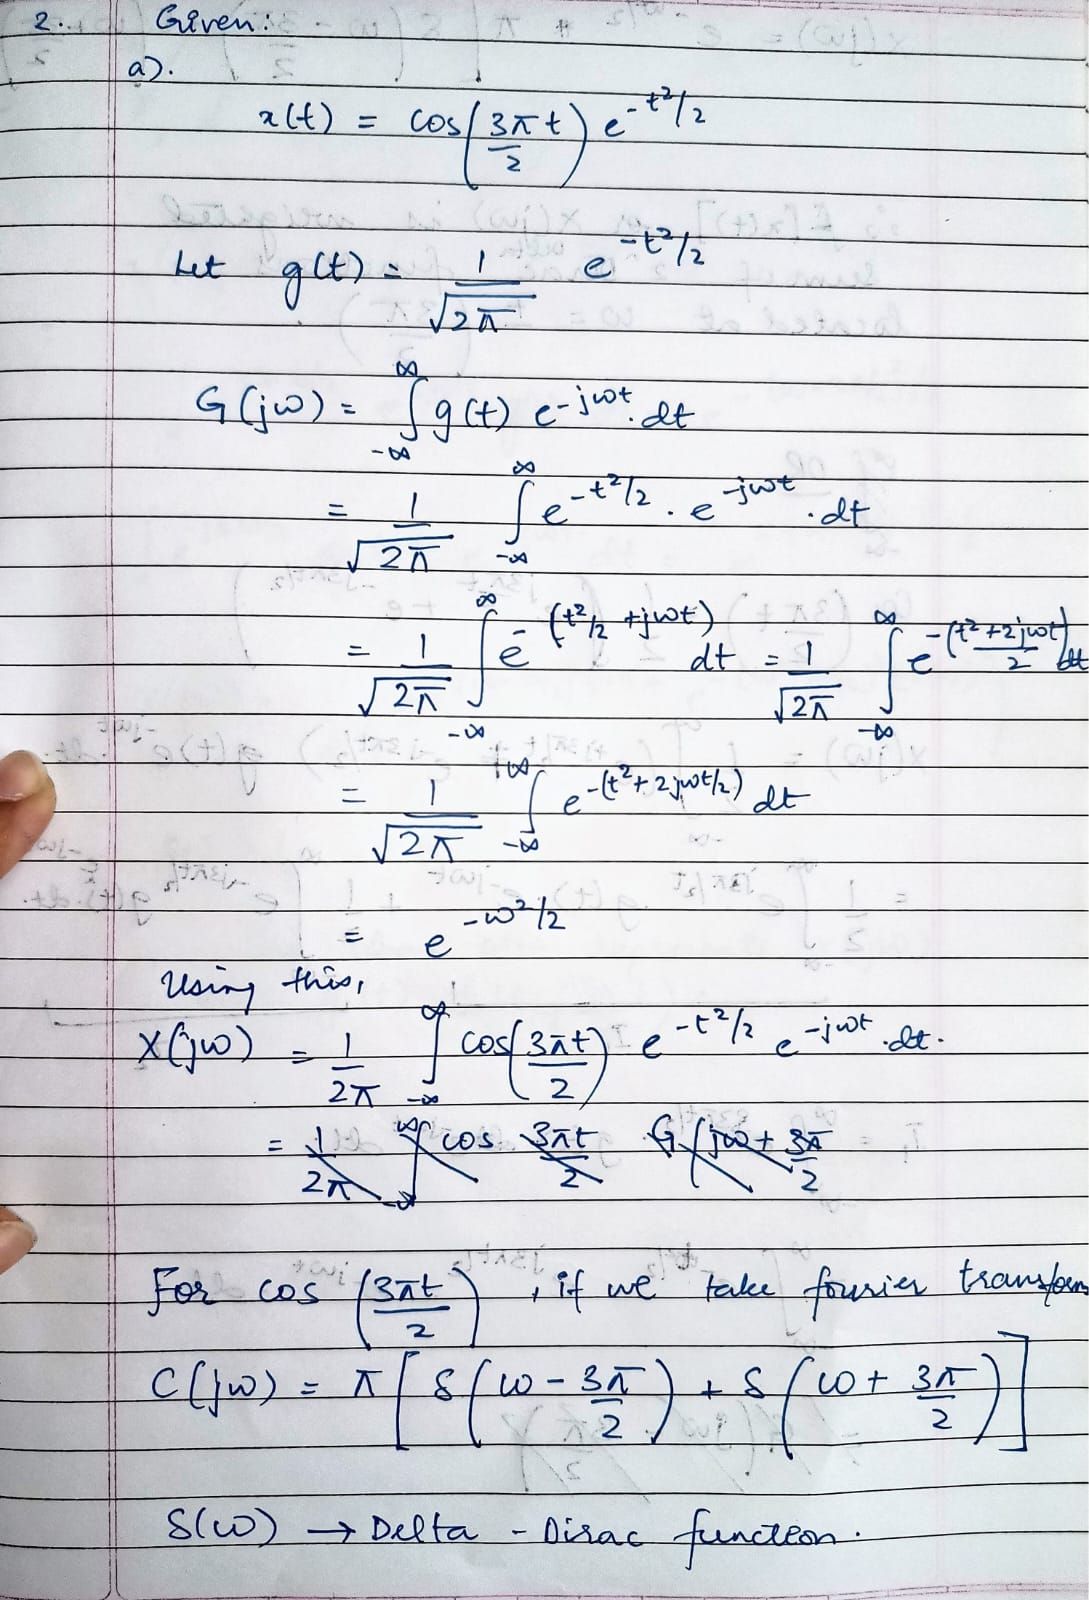 2. Given:
a).
x(t) = cos(3πt/2) e^(-t²/2)
Let g(t) = 1/√2π e^(-t²/2)
G(jω) = ∫_{-∞}^{∞} g(t) e^(-jωt) . dt
= 1/√2π ∫_{-∞}^{∞} e^(-t²/2) . e^(-jωt) . dt
= 1/√2π ∫_{-∞}^{∞} e^-(t²/2 + jωt) dt = 1/√2π ∫_{-∞}^{∞} e^-(t²+2jωt)/2 dt
= 1/√2π ∫_{-∞}^{+∞} e^-(t²+2jωt/2) dt
= e^(-ω²/2)
Using this,
X(jω) = 1/2π ∫_{-∞}^{∞} cos(3πt/2) e^(-t²/2) e^(-jωt) .dt.
= 1/2π ∫_{-∞}^{∞} cos 3πt/2 G(jω + 3π/2
For cos (3πt/2), if we take fourier transform
C(jω) = π[δ(ω - 3π/2) + δ(ω + 3π/2)]
δ(ω) → Delta - Dirac function.